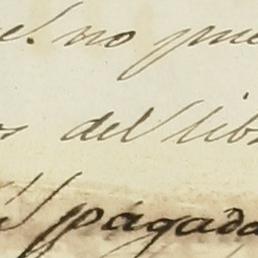 no pue
del lib
pagada